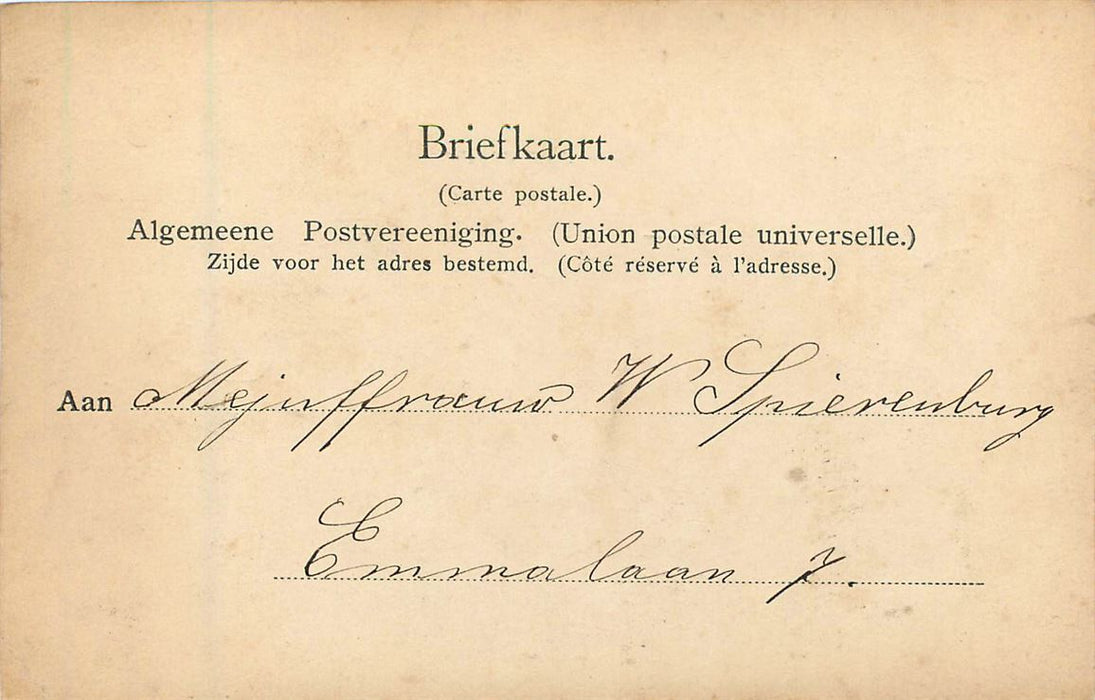 Briefkaart.
(Carte postale.)
Algemeene Postvereeniging. (Union postale universelle.)
Zijde voor het adres bestemd. (Côté réservé à l'adresse.)
Aan Mejuffrouw W Spierenburg
Emmalaan 7.